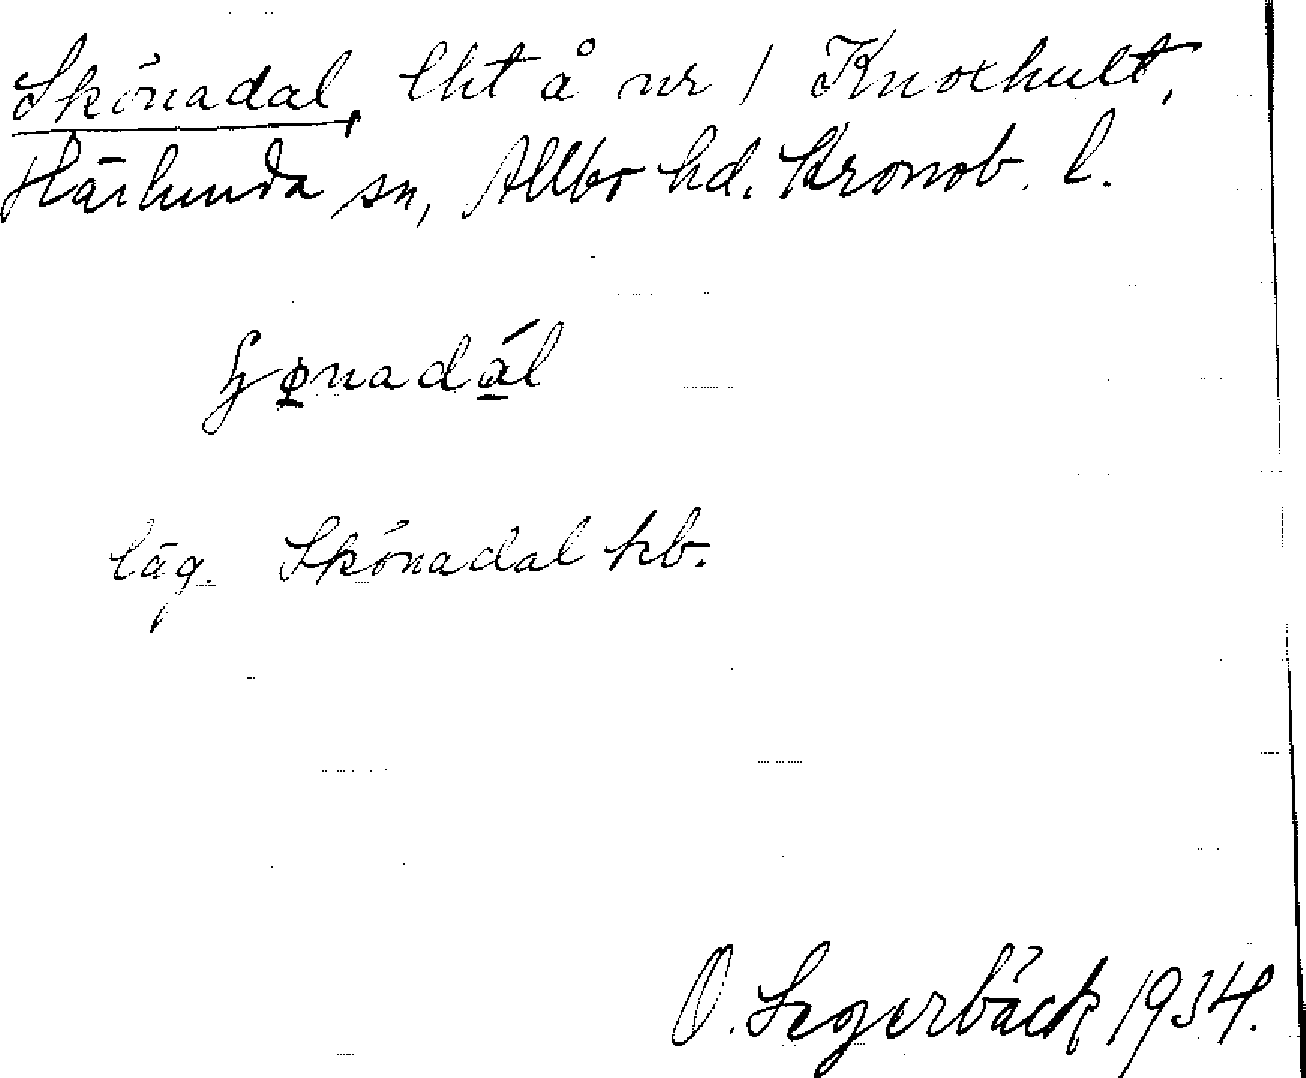 Skönadal, lht å nr 1 Knoxhult,
Härlunda sn, Allbo hd. Kronob. l.
läg. Skönadal kb.
O. Segerbäck 1934.